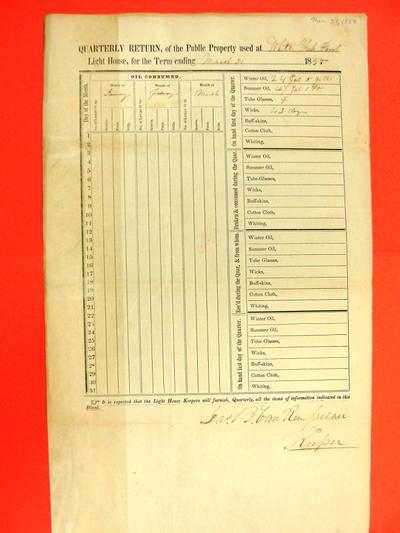 Mar. 31, 1855
QUARTERLY RETURN, of the Public Property used at White
Light House, for the Term ending March 31 1855
OIL CONSUMED.
Day of the Month.
Month of January
Month of
Month of March
No. of Lamps lit up.
Quarts.
Pints.
Gills.
No. of Lamps lit up.
Quarts.
Pints.
Gills.
No. of Lamps lit up.
Quarts.
Pints.
Gills.
1
2
3
4
5
6
7
8
9
10
11
12
13
14
15
16
17
18
19
20
21
22
23
24
25
26
27
28
29
30
31
On hand first day of the Quarter.
Winter Oil,
Summer Oil,
Tube Glasses, 9
Wicks,
Buff-skins,
Cotton Cloth,
Whiting,
Broken & consumed during the Quar.
Winter Oil,
Summer Oil,
Tube-Glasses,
Wicks,
Buff-skins,
Cotton Cloth,
Whiting,
Rec'd during the Quar. & from whom.
Winter Oil,
Summer Oil,
Tube Glasses,
Wicks,
Buff-skins,
Cotton Cloth,
Whiting,
On hand last day of the Quarter.
Winter Oil,
Summer Oil,
Tube Glasses,
Wicks,
Buff-skins,
Cotton Cloth,
Whiting,
It is expected that the Light House Keepers will furnish, Quarterly, all the items of information indicated in this
Blank.
Van
Keeper